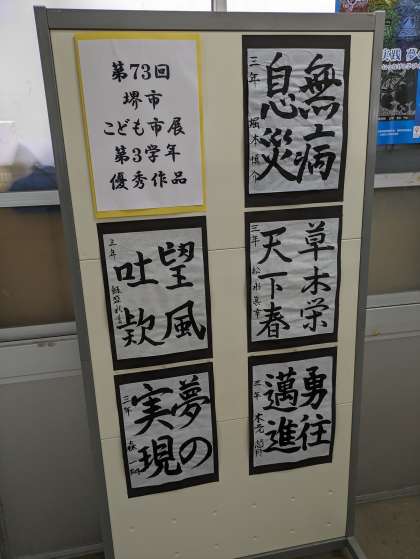 第73回
堺市
こども市展
第3学年
優秀作品
無病
息災
三年
草木栄
天下春
三年
望風
吐款
三年
勇往
邁進
三年
夢の
実現
三年
実践 夢